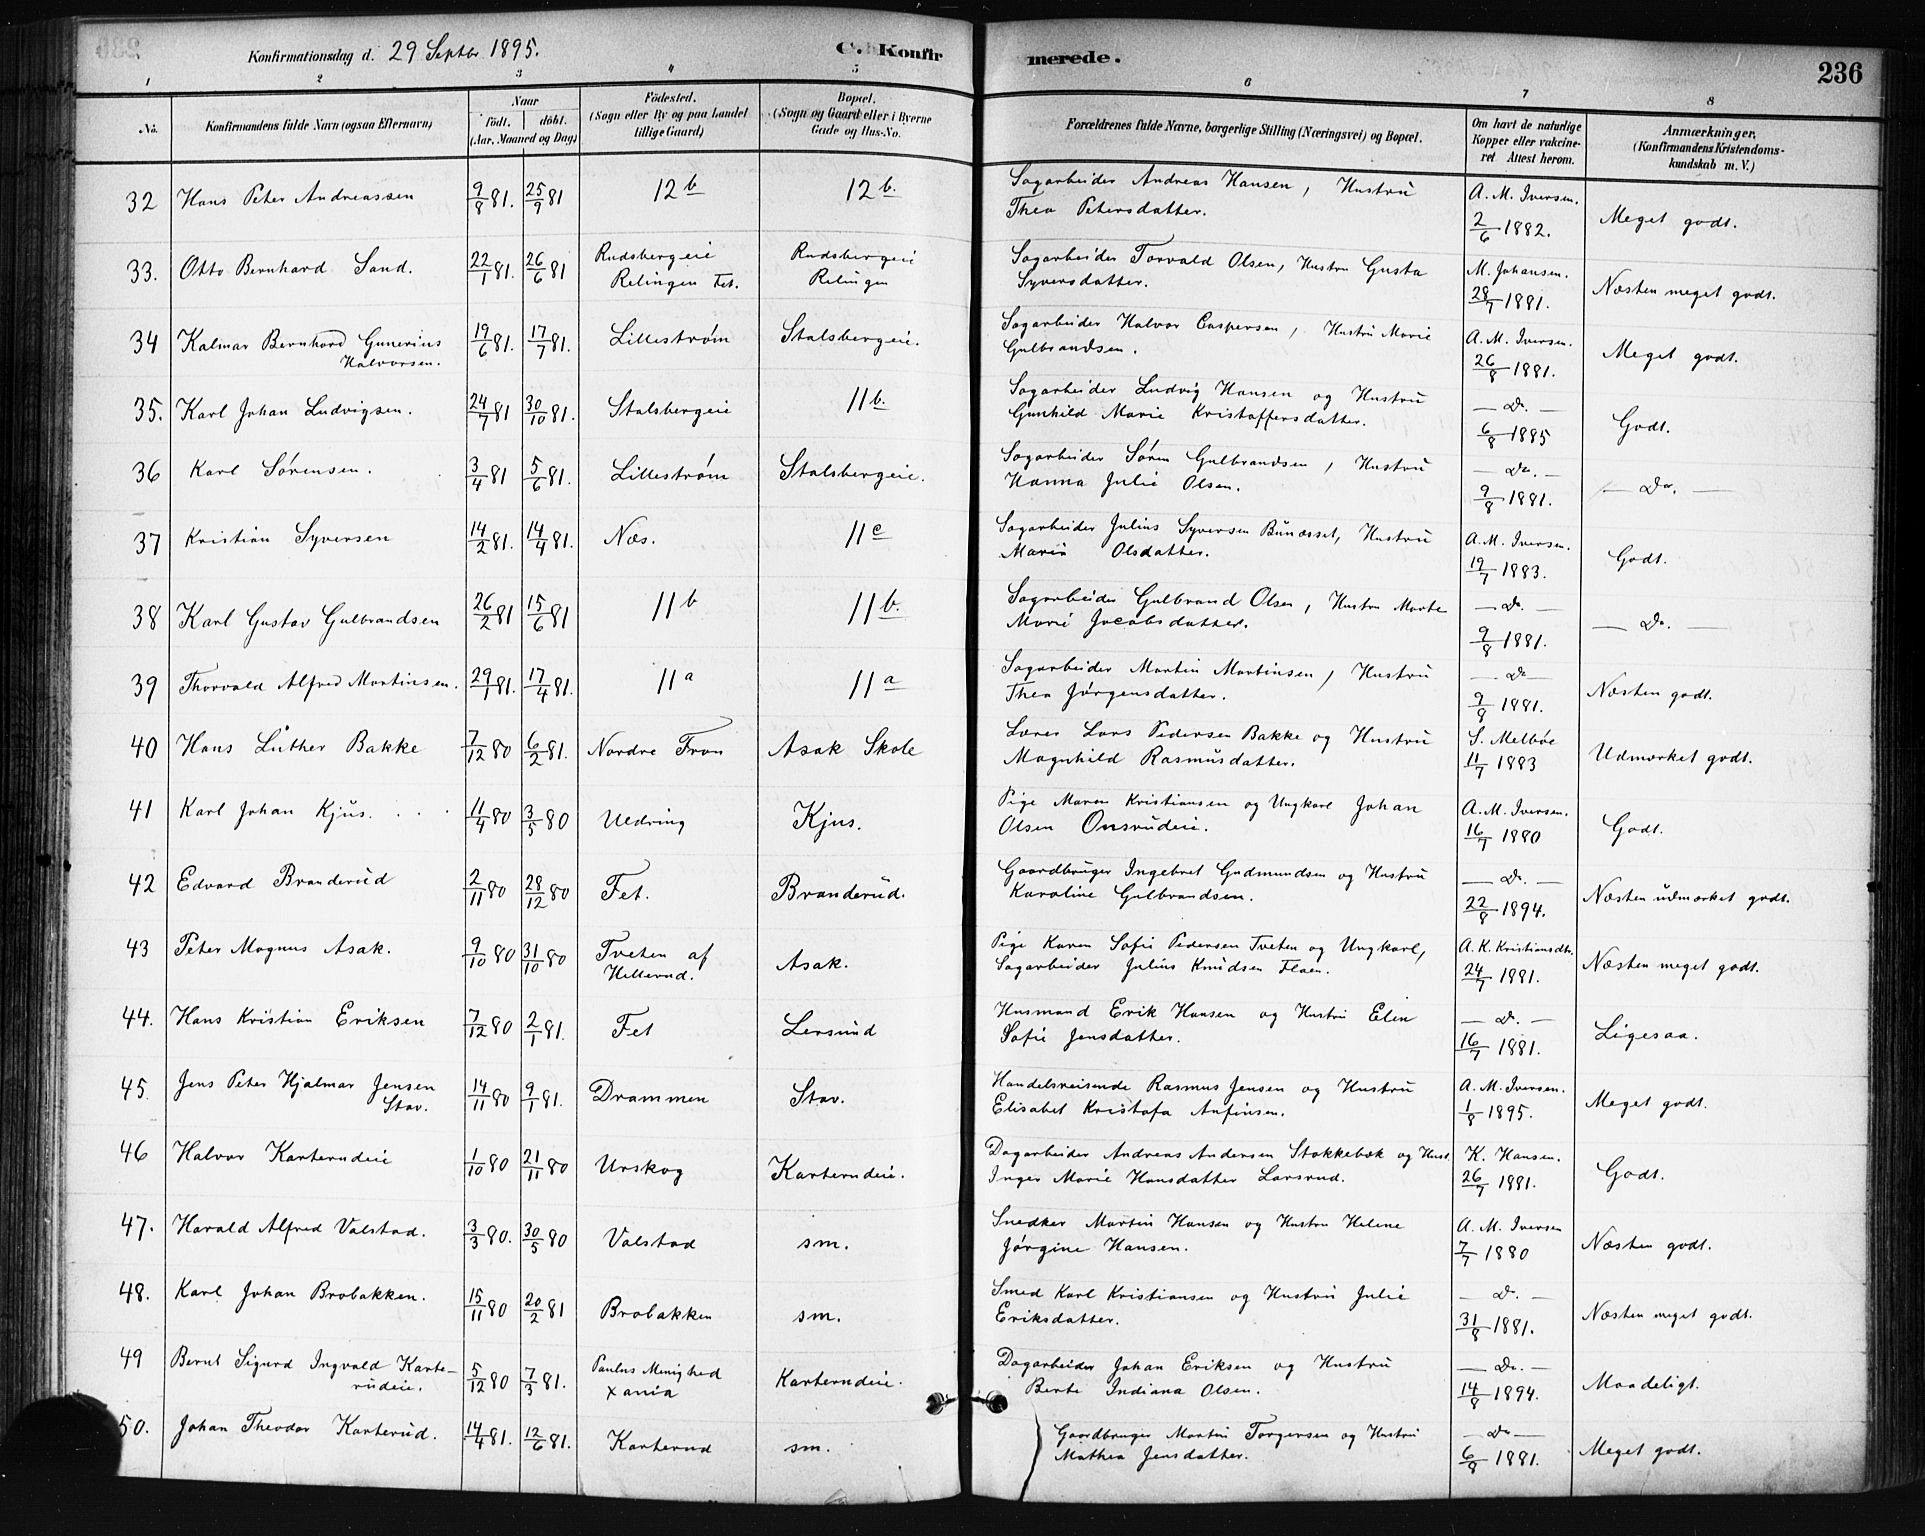 Konfirmationsdag d. 29 Septbr 1895.
C. Konfirmerede.
236
1 2 3 4 5 6 7 8
No.
Konfirmandens fulde Navn (ogsaa Efternavn)
Naar
født. døbt.
(Aar, Maaned og Dag)
Fødested.
(Sogn eller By og paa Landet
tillige Gaard)
Bopæl.
(Sogn og Gaard eller i Byerne
Gade og Hus-No.
Forældrenes fulde Navne, borgerlige Stilling (Næringsvei) og Bopæl.
Om havt de naturlige
Kopper eller vakcine-
ret Attest herom.
Anmærkninger,
(Konfirmandens Kristendoms-
kundskab m. V.)
32 Hans Peter Andreassen 9/8 81. 25/9 81 12 b 12 b. Sagarbeider Andreas Hansen, Hustru A. M. Iversen.
Thea Petersdatter. 2/6 1882. Meget godt.
33. Otto Bernhard Sand. 22/1 81. 26/6 81 Rudsbergeie Rudsbergeie Sagarbeider Torvald Olsen, Hustru Gusta M. Johansen.
Relingen Fet. Relingen Syversdatter. 28/7 1881. Næsten meget godt.
34 Kalmar Bernhard Gunerius 19/6 81. 17/7 81. Lillestrøm Stalsbergeie. Sagarbeider Halvor Caspersen, Hustru Marie A. M. Iversen.
Halvorsen. Gulbrandsen. 26/8 1881. Meget godt.
35. Karl Johan Ludvigsen. 24/7 81 30/10 81. Stalsbergeie 11 b. Sagarbeider Ludvig Hansen og Hustru — Do. —
Gunhild Marie Kristoffersdatter. 6/8 1885 Godt.
36 Karl Sørensen. 3/4 81 5/6 81. Lillestrøm Stalsbergeie. Sagarbeider Søren Gulbrandsen, Hustru — Do. —
Hanna Julie Olsen. 9/8 1881. — Do. —
37 Kristian Syversen 14/2 81. 14/4 81. Næs. 11 c Sagarbeider Julius Syversen Bunæsset, Hustru A. M. Iversen.
Marie Olsdatter. 19/7 1883. Godt.
38 Karl Gustav Gulbrandsen 26/2 81 15/6 81 11 b 11 b. Sagarbeider Gulbrand Olsen, Hustru Marte — Do. —
Marie Jacobsdatter. 9/8 1881. — Do. —
39 Thorvald Alfred Martinsen. 29/1 81. 17/4 81. 11 a 11 a Sagarbeider Martin Martinsen, Hustru — Do —
Thea Jørgensdatter. 9/8 1881. Næsten godt.
40 Hans Luther Bakke 7/12 80 6/2 81. Nordre Fron Asak Skole Lærer Lars Pedersen Bakke og Hustru S. Melbøe
Magnhild Rasmusdatter. 11/7 1883 Udmærket godt.
41 Karl Johan Kjus. 11/4 80 3/5 80 Uldring Kjus. Pige Maren Kristiansen og Ungkarl Johan A. M. Iversen.
Olsen Onsrudeie. 16/7 1880 Godt.
42 Edvard Branderud 2/11 80 28/12 80 Fet. Branderud. Gaardbruger Ingebret Gudmundsen og Hustru — Do. —
Karoline Gulbrandsen. 22/8 1894. Næsten udmærket godt.
43 Peter Magnus Asak. 9/10 80 31/10 80 Tveten af Asak. Pige Karen Sofie Pedersen Tveten og Ungkarl, A. K. Kristiansdtr.
Hellerud. Sagarbeider Julius Knudsen Flaen. 24/7 1881. Næsten meget godt.
44. Hans Kristian Eriksen 7/12 80 2/1 81. Fet Lersund Husmand Erik Hansen og Hustru Elin — Do. —
Sofie Jensdatter. 16/7 1881. Ligesaa.
45. Jens Peter Hjalmar Jensen 14/11 80 9/1 81. Drammen Stav. Handelsreisende Rasmus Jensen og Hustru A. M. Iversen.
Stav. Elisabet Kristofa Anfinsen. 1/8 1895. Meget godt.
46 Halvor Karterudeie 1/10 80 21/11 80 Urskog Karterudeie. Dagarbeider Andreas Andersen Stokkebæk og Hust. K. Hansen.
Inger Marie Hansdatter Larsrud. 26/7 1881. Godt.
47. Harald Alfred Valstad. 3/3 80. 30/5 80 Valstad sm. Snedker Martin Hansen og Hustru Helene A. M. Iversen
Jørgine Hansen. 7/7 1880 Næsten godt.
48. Karl Johan Brobakken. 15/11 80 20/2 81 Brobakken sm. Smed Karl Kristiansen og Hustru Julie — Do. —
Eriksdatter. 31/8 1881. Næsten meget godt.
49 Bernt Sigurd Ingvald Karte- 5/12 80 7/3 81. Paulus Menighed Karterudeie. Dagarbeider Johan Eriksen og Hustru — Do. —
rudeie. Xania Berte Indiana Olsen. 14/8 1894. Maadeligt.
50. Johan Theodor Karterud. 14/4 81. 12/6 81. Karterud sm. Gaardbruger Martin Torgersen og Hustru — Do —
Mathea Jensdatter. 6/8 1881. Meget godt.